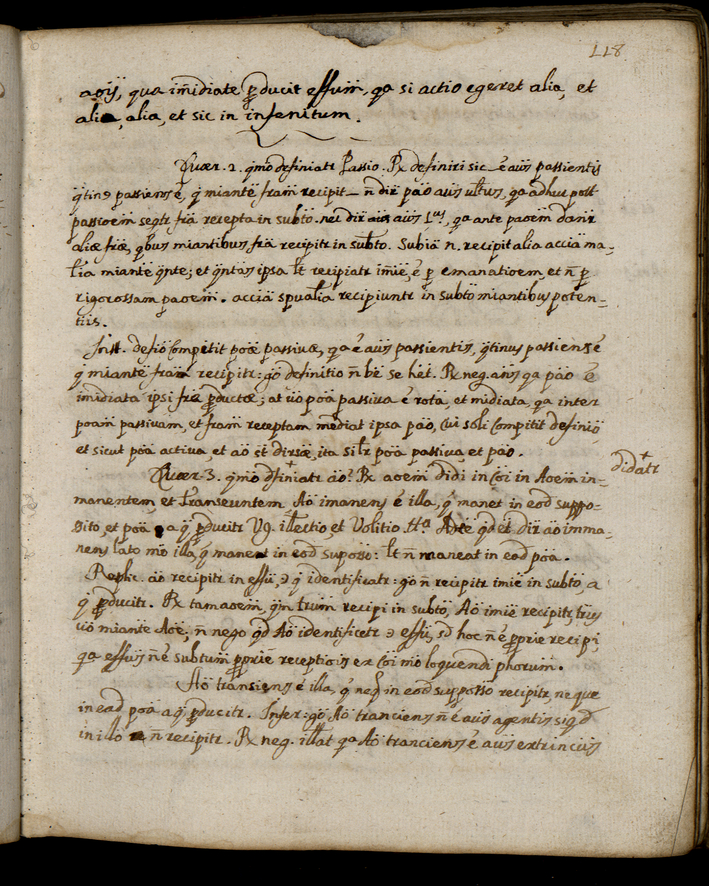 118
aoïs, qua im̃ediate p̱ducit effum̃, qa si actio egeret alia, et
alia, alia, et sic in infenitum.
Quær. 2. qmo definiatr Passio. Rx definiri sic é aüs passientis
q̃tin9 passiens é, q̃ miante fram̃ recipit n̄ dir̃ pão aüs ultus, qa adhuc post
passioem̃ seqtr fra recepta in subto. neü dir aüs 1us, qa ante paoem̃ danr
aliæ fræ, qbus miantibus fra recipitr in subto. Subia n. recipit alia accia ma-
lia miante q̃nte; et q̃ntas ipsa lt recipiatr im̃ie, é p emanatioem, et n̄ p
rigorossam paoem̃. accia spualia recipiuntr in subto miantibus poten-
tiis.
Inst. defio Competit poæ passivæ, qa é aüs passientis, q̃tinus passiens é
q̃ miante fram̃ recipitr: go definitio n̄ be se het. Rx neg. añs qa pão é
im̃idiata ipsi fræ p̱ductæ; at üo poa passiva é rota, et midiata, qa inter
poam passivam, et fram receptam mediat ipsa pão, cui soli Competit definio
et sicut poa activa et ao st dirsæ, ita silr poa passiva et pao.
didatr
Quær. 3. qmo dfiniatr ão? Rx aoem̃ didi in Coi in Aoem̃ in-
manentem, et Transeuntem. Aõ imanens é illa, q̃ manet in eod suppo-
sito, et poa a q̃ p̱ducitr Vg. illectio, et Volitio. tta Adte qd et dir ão imma-
nens lato mõ illa, q̃ manent in eod suposso: lt n̄ maneat in eod poa.
Replic. ão recipitr in effu, 9 q̃ identificatr: go n̄ recipitr imie in subto, a
q̃ p̱ducitr. Rx tam aoem̃, q̃m trum recipi in subto, Aõ imie recipitr, trus
uo miante Aoe; n̄ nego qd Aõ identificetr 9 effu, sd hoc n̄ é p̱prie recipi,
qa effus n̄ é subtum p̱prie receptiois ex Coi mõ loquendi phorum.
Aõ transiens é illa, q̃ neq in eod supposso recipitr, neque
in ead poa a q̃ p̱ducitr. Infer: go Aõ tranciens n̄ é aüs agentis siqd
in illo n̄ recipitr. Rx neg. illat qa Aõ tranciens é aüs extrincüs